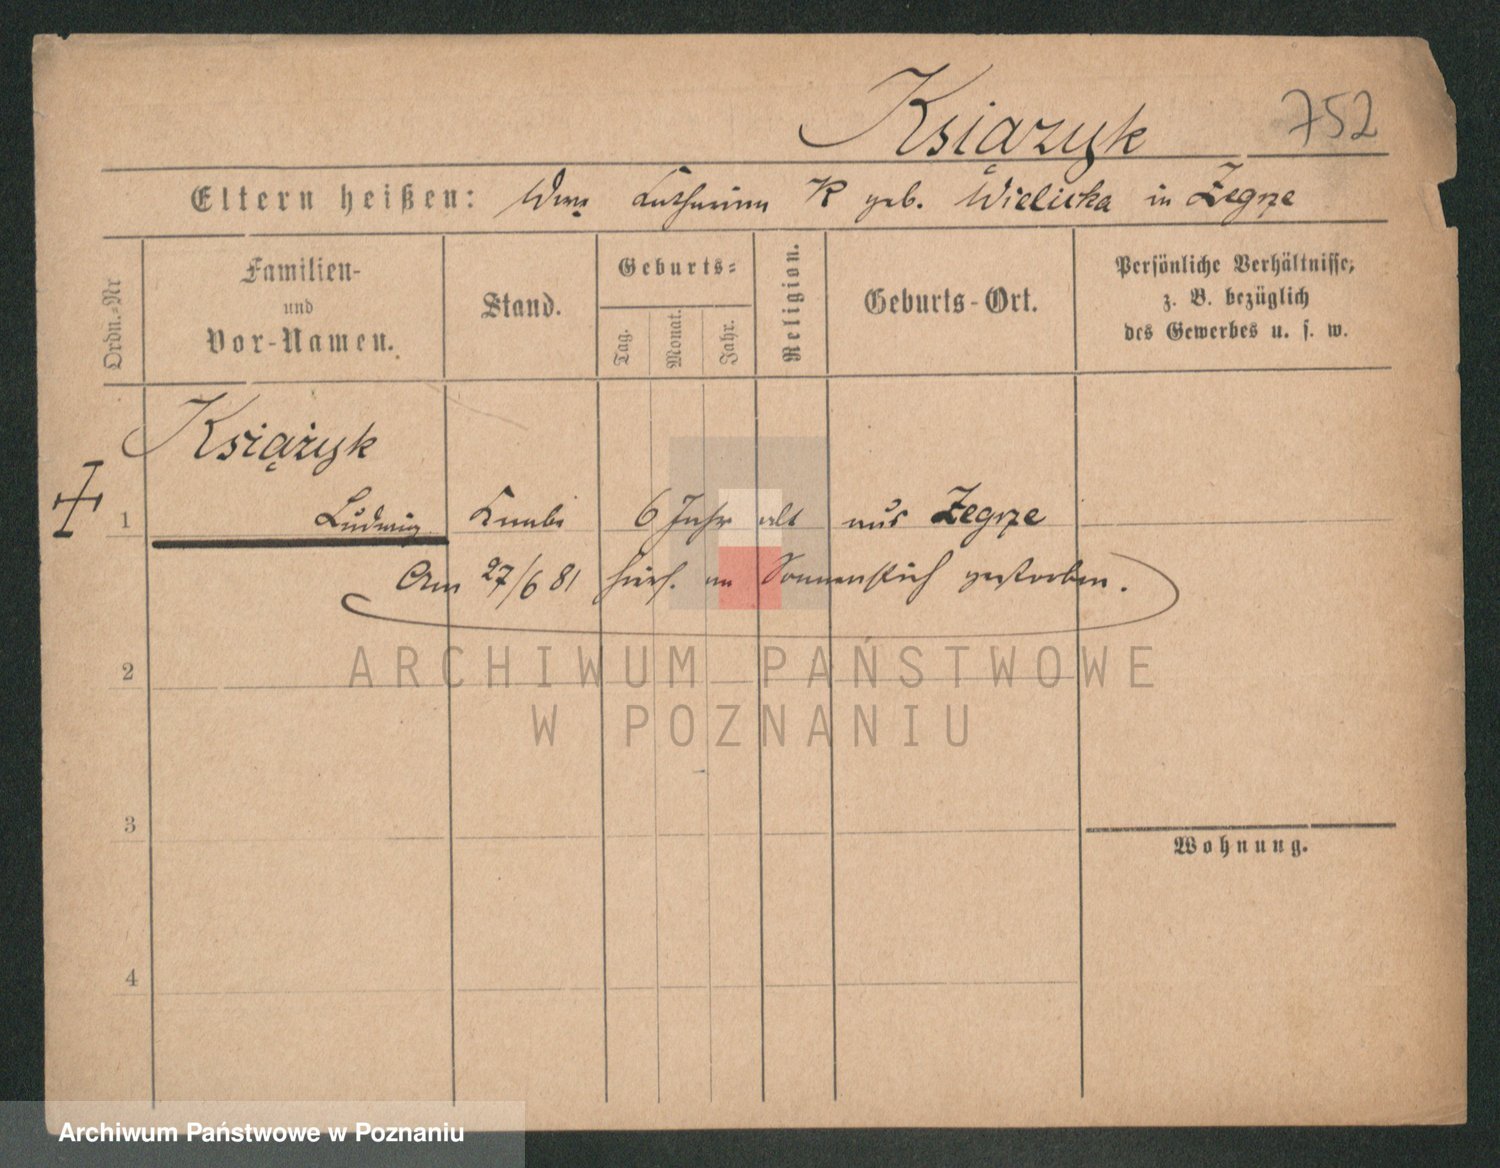 Ksiązyk 752
Eltern heißen: Wwe Katharina K geb. Wielicka in Żegrze
Ordn.-Nr
Familien-
und
Vor-Namen.
Stand.
Geburts-
Tag.
Monat.
Jahr.
Religion.
Geburts-Ort.
Persönliche Verhältnisse,
z. B. bezüglich
des Gewerbes u. s. w.
Książyk
1 Ludwig Knabe 6 Jahr alt aus Żegrze
Am 27/6 81 hiers. am Sonnenstich gestorben.
2
ARCHIWUM PAŃSTWOWE
W POZNANIU
3
Wohnung.
4
Archiwum Państwowe w Poznaniu